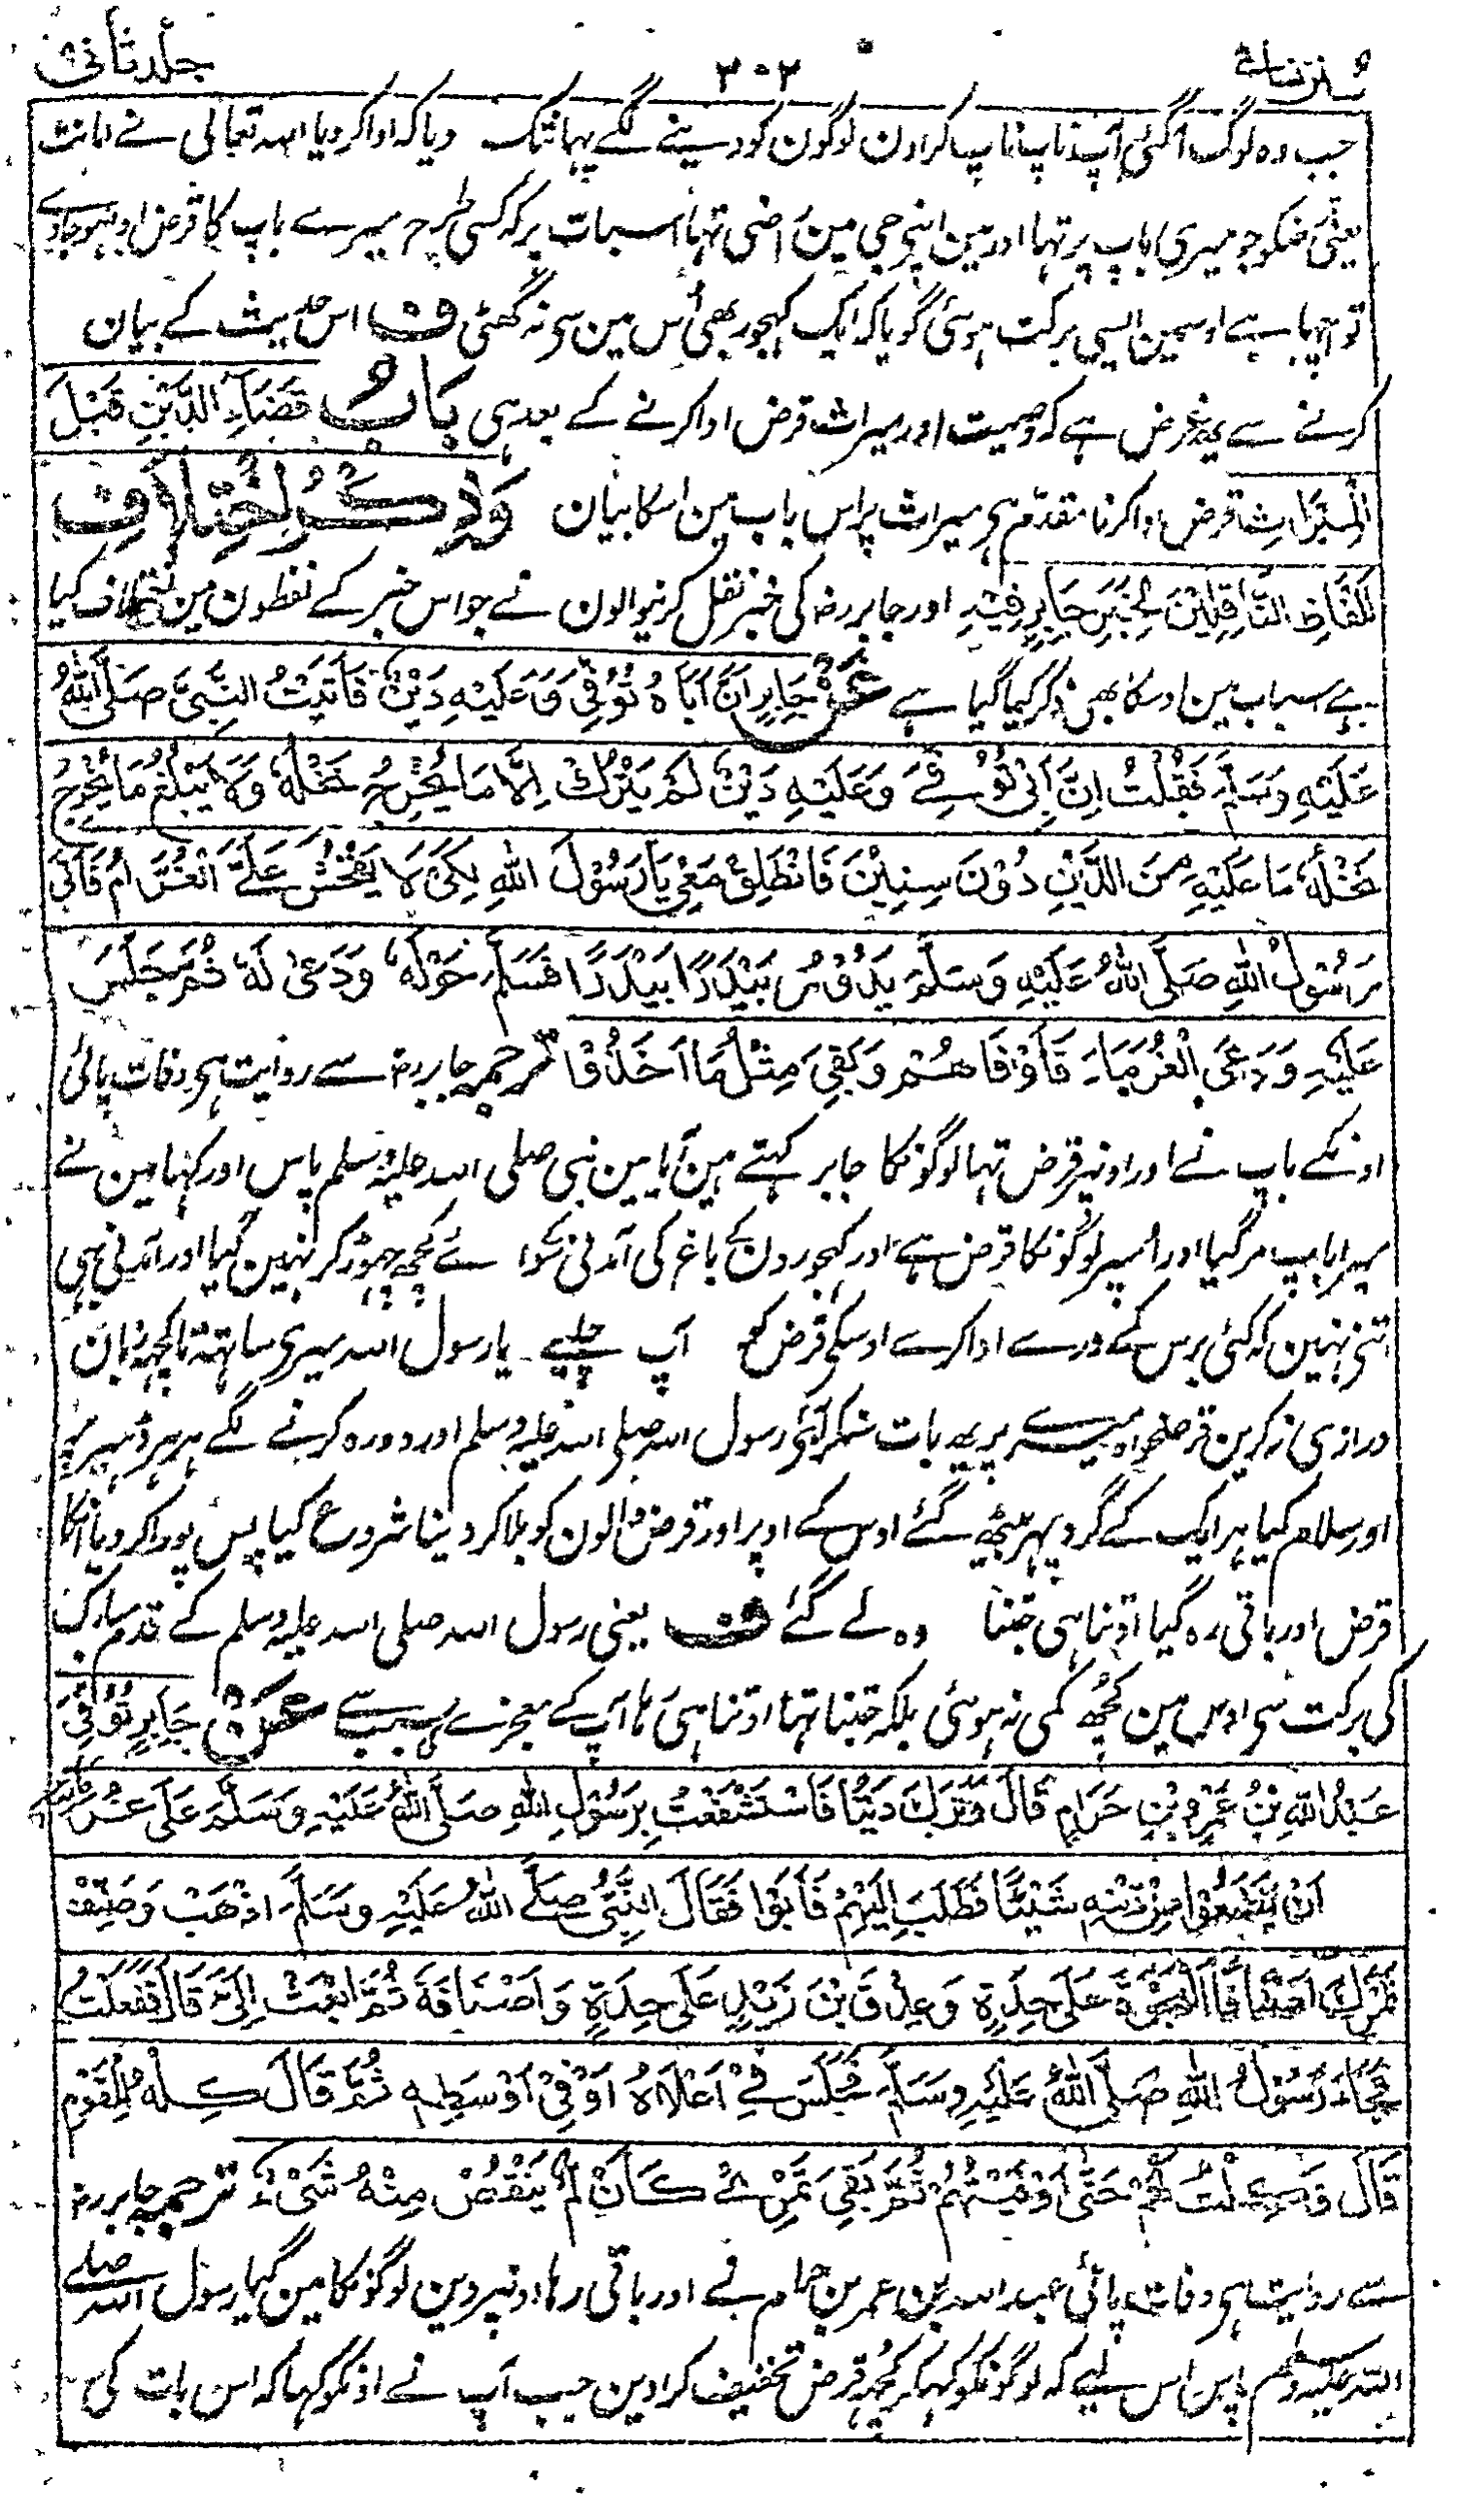 سنن نسائی ۳۰۲ جلد ثانی
جب وہ لوگ آگئی آپ ناپ ناپ کر اون لوگون کو دینے لگے یہانتک دیا کہ ادا کر دیا اللہ تعالی نے امانت
یعنی جو میری باپ پر تہا اور مین اپنے جی مین راضی تہا اسبات پر کہ کسی طرح میرے باپ کا قرض ادا ہو جاوے
تو اچہا ہے اوسمین ایسی برکت ہوئی گویا کہ ایک کہجور بھی اُس مین سی نہ گھٹی ف اس حدیث کے بیان
کرنے سے یہ غرض ہے کہ وصیت اور میراث قرض ادا کرنے کے بعد ہی بَابُ قَضَاءِ الدَّيْنِ قَبْلَ
الْمِيْرَاثِ قرض ادا کرنا مقدم ہی میراث پر اس باب مین اسکا بیان وَذِكْرُ اخْتِلَافِ
اَلْفَاظِ النَّاقِلِيْنَ لِخَبَرِ جَابِرٍ فِيْهِ اور جابر رض کی خبر نقل کرنیوالون نے جو اس خبر کے لفظون مین اختلاف کیا
ہے اسباب مین اوسکا بھی ذکر کیا گیا ہے عَنْ جَابِرٍ اَنَّ اَبَاهُ تُوُفِّيَ وَعَلَيْهِ دَيْنٌ فَاَتَيْتُ النَّبِيَّ صَلَّى اللهُ
عَلَيْهِ وَسَلَّمَ فَقُلْتُ اِنَّ اَبِيْ تُوُفِّيَ وَعَلَيْهِ دَيْنٌ لَمْ يَتْرُكْ اِلَّا مَا يُخْرِجُ نَخْلُهٗ وَلَا يَبْلُغُ مَا يُخْرِجُ
نَخْلُهٗ مَا عَلَيْهِ مِنَ الدَّيْنِ دُوْنَ سِنِيْنَ فَانْطَلِقْ مَعِيَ يَا رَسُوْلَ اللهِ لِكَيْ لَا يَفْحُشَ عَلَيَّ الْغُرَّامُ فَاَتٰى
رَسُوْلُ اللهِ صَلَّى اللهُ عَلَيْهِ وَسَلَّمَ يَدُوْرُ بَيْدَرًا بَيْدَرًا فَسَلَّمَ حَوْلَهٗ وَدَعٰى لَهٗ ثُمَّ جَلَسَ
عَلَيْهِ وَدَعَى الْغُرَمَاءَ فَاَوْفَاهُمْ وَبَقِيَ مِثْلُ مَا اَخَذُوْا ترجمہ جابر رض سے روایت ہی وفات پائی
اونکے باپ نے اور اونپر قرض تہا لوگونکا جابر کہتے مین آیا مین نبی صلی اللہ علیہ وسلم پاس اور کہا مین نے
میرا باپ مر گیا اور اُسپر لوگونکا قرض ہے اور کہجورون کے باغ کی آمدنی سوا ئے کچہ چہوڑ کر نہین گیا اور آمدنی بہی
اتنی نہین کہ کئی برس کے ورے ادا کرے اوسکی قرض کو آپ چلیے یا رسول اللہ میری ساتہہ تا کچہہ زبان
درازی نہ کرین قرضخواہ میرے پر یہ بات سنکر آئی رسول اللہ صلی اللہ علیہ وسلم اور دورہ کرنے لگے ہر ہر ڈہیر پر
اور سلام کیا ہر ایک کے گرد پہر بیٹھہ گئے اوس کے اوپر اور قرض والون کو بلا کر دینا شروع کیا پس پورا کر دیا انکا
قرض اور باقی رہ گیا اوتنا ہی جتنا وہ لے گئے ف یعنی رسول اللہ صلی اللہ علیہ وسلم کے قدم مبارک
کی برکت سی اوس مین کچھ کمی نہ ہوئی بلکہ جتنا تہا اوتنا ہی رہا آپ کے معجزے کے سبب سے عَنْ جَابِرٍ تُوُفِّيَ
عَبْدُ اللهِ بْنُ عَمْرِو بْنِ حَرَامٍ قَالَ وَتَرَكَ دَيْنًا فَاسْتَشْفَعْتُ بِرَسُوْلِ اللهِ صَلَّى اللهُ عَلَيْهِ وَسَلَّمَ عَلٰى غُرَمَائِهٖ
اَنْ يَضَعُوْا مِنْ دَيْنِهٖ شَيْئًا فَطَلَبَ اِلَيْهِمْ فَاَبَوْا فَقَالَ النَّبِيُّ صَلَّى اللهُ عَلَيْهِ وَسَلَّمَ اذْهَبْ وَصَنِّفْ
تَمْرَكَ اَصْنَافًا الْعَجْوَةَ عَلٰى حِدَةٍ وَعِذْقَ بْنَ زَيْدٍ عَلٰى حِدَةٍ وَاَصْنَافَهٗ ثُمَّ ابْعَثْ اِلَيَّ قَالَ فَفَعَلْتُ
فَجَاءَ رَسُوْلُ اللهِ صَلَّى اللهُ عَلَيْهِ وَسَلَّمَ فَجَلَسَ فِيْ اَعْلَاهُ اَوْ فِيْ اَوْسَطِهٖ ثُمَّ قَالَ كِلْ لِلْقَوْمِ
قَالَ فَكِلْتُ لَهُمْ حَتّٰى اَوْفَيْتُهُمْ ثُمَّ بَقِيَ تَمْرِيْ كَاَنْ لَمْ يَنْقُصْ مِنْهُ شَيْءٌ ترجمہ جابر رض
سے روایت ہی وفات پائی عبد اللہ بن عمر بن حرام نے اور باقی رہا اونپر دین لوگونکا مین گیا رسول اللہ صلے
اللہ علیہ وسلم پاس اس لیے کہ لوگونکو کہکر کچہہ قرض تخفیف کرا دین جب آپ نے اونکو کہا کہ اس بات کی